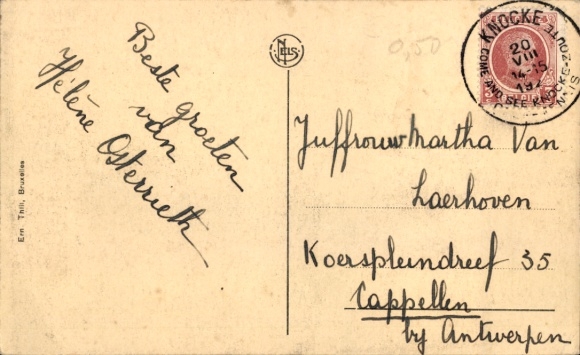 Beste groeten
van
Hélène Osterrieth
Ern. Thill, Bruxelles
NELS
0,50
KNOCKE
20
VIII
14-15
192
COME AND SEE KNOCKE-ZOUTE
Juffrouw Martha Van
Laerhoven
Koerspleindreef 35
Cappellen
by Antwerpen